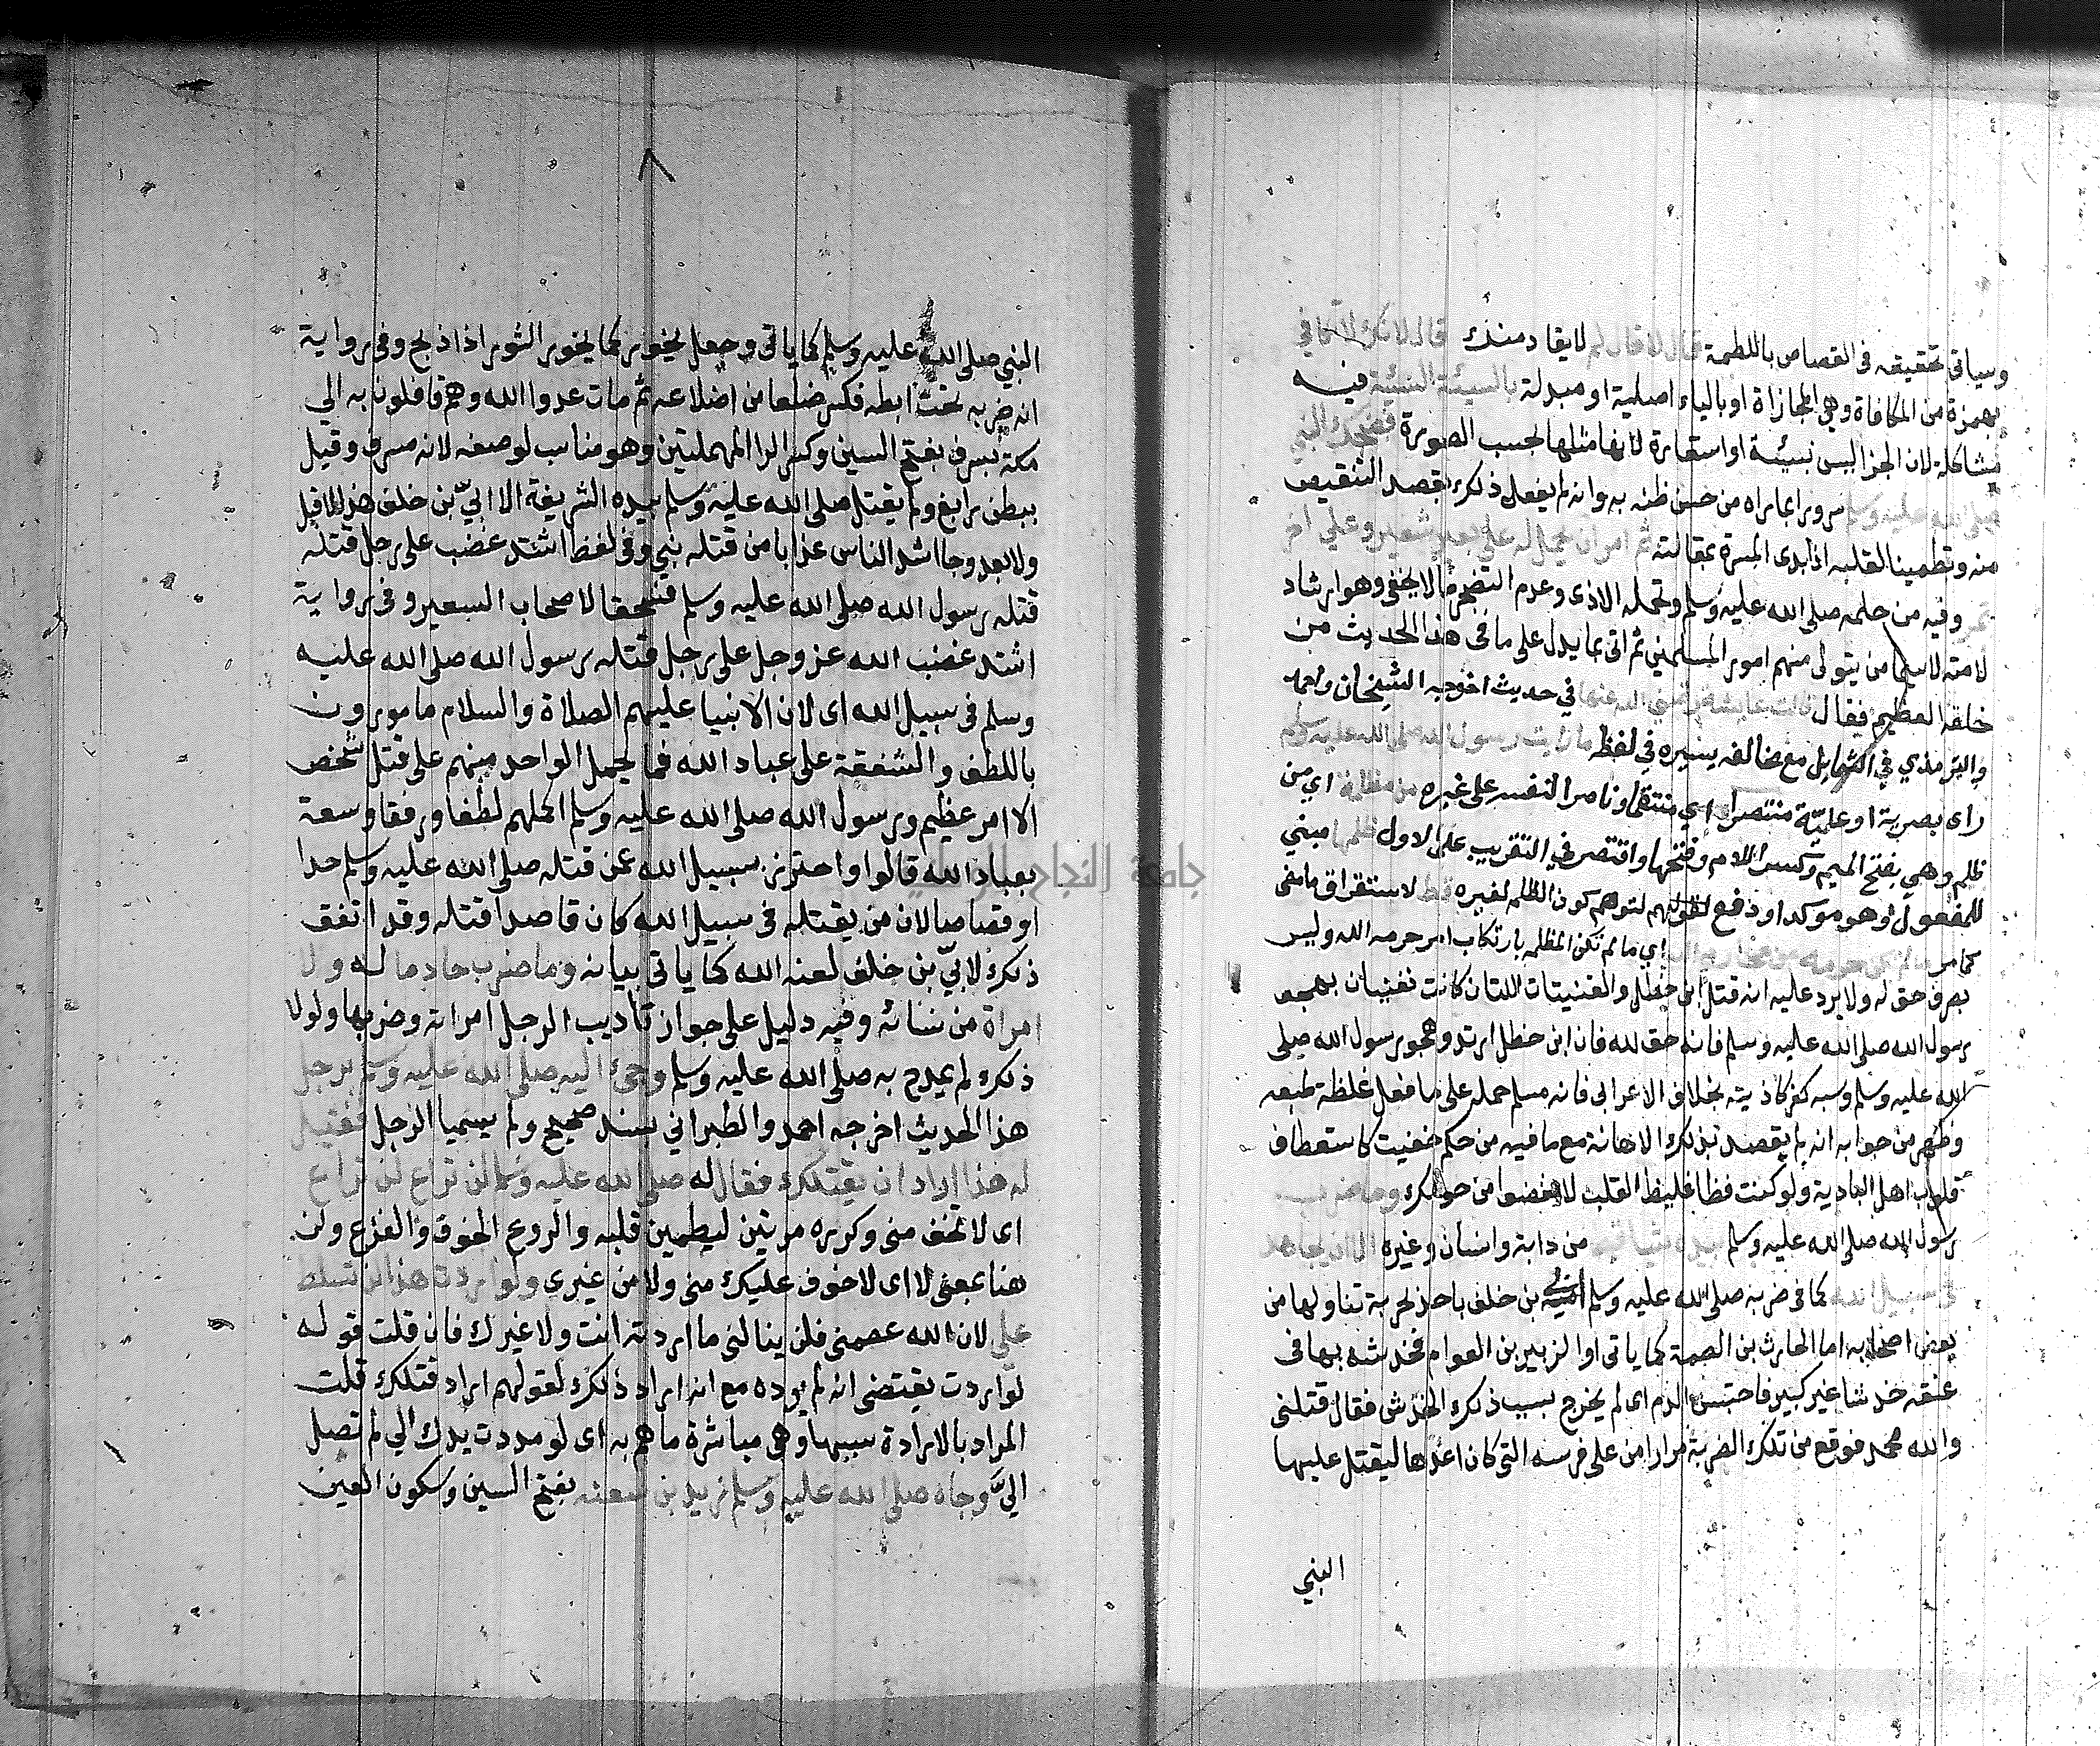 وسياتى تحقيقه فى القصاص باللطمة قال لا قال لم لا يقاد منك قال لانك لا تكافى
بهمزة من المكافاة وهى المجازاة او بالياء اصلية او مبدلة بالسيئة السيئة فيه
مشاكلة لان الجزا ليس بسيئة او استعارة لانها مثلها بحسب الصورة فضحك النبي
صلى الله عليه وسلم سرورا بما راه من حسن ظنه به وانه لم يفعل ذلك بقصد التنقيص
منه وتطمينا لقلبه اذ ابدى المسرة بمقالته ثم امر ان يحمل له على بعير شعير وعلى اخر
تمر وفيه من حلمه صلى الله عليه وسلم وتحمله الاذى وعدم التضجر ما لا يخفى وهو ارشاد
لامته لا سيما من يتولى منهم امور المسلمين ثم اتى بما يدل على ما فى هذا الحديث من
خلقه العظيم فقال قالت عايشة رضي الله عنها في حديث اخرجه الشيخان واحمد
والترمذي في الشمايل مع مخالفه يسيره في لفظه ما رايت رسول الله صلى الله عليه وسلم
راى بصرية او علميّة منتصرا اي منتقما وناصرا لنفسه على غيره من مظلمة اي من
ظلم وهى بفتح الميم وكسر اللام وفتحها واقتصر في التقريب على الاول ظلمها مبني
للمفعول وهو موكد او دفع لتوهم كون الظلم لغيره قط لاستغراق ما مضى
كما مر ما لم تكن حرمه من محارم الله اي ما لم تكن المظلمه بارتكاب امر حرمه الله وليس
بصرف حق له ولا يرد عليه انه قتل ابن خطل والقينيتات اللتان كانت تغنيان بهجو
رسول الله صلى الله عليه وسلم فانه حق لله فان ابن خطل ارتد وهجو رسول الله صلى
الله عليه وسلم وسبه كفر كاذيته بخلاف الاعرابى فانه مسلم حمله على ما فعل غلظة طبعه
وظهر من جوابه انه لم يقصد بذلك الاهانة مع ما فيه من حكم خفيت كاستعطاف
قلوب اهل البادية ولو كنت فظا غليظ القلب لانفضوا من حولك وما ضرب
رسول الله صلى الله عليه وسلم بيده شيا قط من دابة وانسان وغيره الا ان يجاهد
فى سبيل الله كما فى ضربه صلى الله عليه وسلم ابى بن خلف باحذ لحربة تناولها من
بعض اصحابه اما الحارث بن الصمة كما ياتى او الزبير بن العوام فخدشه بها فى
عنقه خدشا غير كبير فاحتبس الدم اى لم يخرج بسبب ذلك الخدش فقال قتلنى
والله محمد فوقع من تلك الضربة مرارا من على فرسه التى كان اعدها ليقتل عليها
النبي
النبي صلى الله عليه وسلم كما ياتى وجعل يخور كما يخور الثور اذا ذبح وفى رواية
انه ضربه تحت ابطه فكسر ضلعا من اضلاعه ثم مات عدو الله وهم قافلون به الي
مكة بسرف بفتح السين وكسر الرا المهملتين وهو مناسب لوصفه لانه مسرف وقيل
ببطن رابغ ولم يقتل صلى الله عليه وسلم بيده الشريفة الا ابيّ بن خلف هذا لا قبل
ولا بعد وجا اشد الناس عذابا من قتله نبي وفى لفظ اشتد غضب على رجل قتله
قتله رسول الله صلى الله عليه وسلم فسحقا لاصحاب السعير وفى رواية
اشتد غضب الله عز وجل على رجل قتله رسول الله صلى الله عليه
وسلم فى سبيل الله اى لان الانبيا عليهم الصلاة والسلام مامورون
باللطف والشفقة على عباد الله فما يحمل الواحد منهم على قتل شخص
الا امر عظيم ورسول الله صلى الله عليه وسلم اكملهم لطفا ورفقا وسعة
بعباد الله قالوا واحترز بسبيل الله عمن قتله صلى الله عليه وسلم حدا
او قصاصا لان من يقتله فى سبيل الله كان قاصدا قتله وقد اتفق
ذلك لابيّ بن خلف لعنه الله كما ياتى بيانه وما ضرب خادما له ولا
امراة من نسائه وفيه دليل على جواز تاديب الرجل امراته وضربها ولولا
ذلك لم يمدح به صلى الله عليه وسلم وجئ اليه صلى الله عليه وسلم برجل
هذا الحديث اخرجه احمد والطبرانى بسند صحيح ولم يسميا الرجل فقيل
له هذا اراد ان يقتلك فقال له صلى الله عليه وسلم لن تراع لن تراع
اى لا تخف منى وكرره مرتين ليطمين قلبه والروع الخوف والفزع ولن
هنا بمعنى لا اى لا خوف عليك منى ولا من غيرى ولو اردت هذا لن تسلط
على لان الله عصمنى فلن ينالنى ما اردته انت ولا غيرك فان قلت قوله
لو اردت يقتضى انه لم يرده مع انه اراد ذلك لقولهم اراد قتلك قلت
المراد بالارادة سببها وهى مباشرة ما هم به اى لو مددت يدك الي لم تصل
اليّ وجاه صلى الله عليه وسلم زيد بن سعنه بفتح السين وسكون العين
جامعة النجاح الوطنية